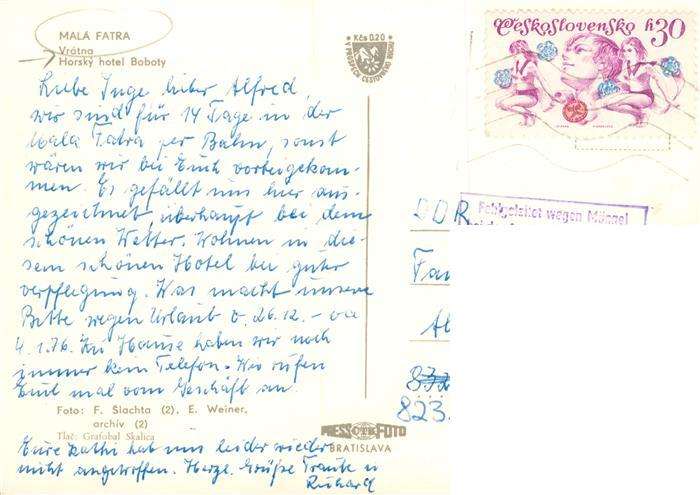 MALÁ FATRA
Vrátna
Horský hotel Boboty
Kčs 0,20
V PROSPECH CESTOVNÉHO RUCHU
Československo h30
Liebe Inge, lieber Alfred,
wir sind für 14 Tage in der
Mala Tatra per Bahn, sonst
wären wir bei Euch vorbeigekom-
men. Es gefällt uns hier aus-
gezeichnet, überhaupt bei dem
schönen Wetter. Wohnen in die-
sem schönen Hotel bei guter
verpflegung. Was macht unsere
Bitte wegen Urlaub v. 26.12. –
4.1.76. Zu Hause haben wir noch
immer kein Telefon. Wir rufen
Euch mal vom Geschäft an.
DDR
Fehlgeleitet wegen Mängel
Fam
823.
Foto: F. Šlachta (2), E. Weiner,
archív (2)
Tlač: Grafobal Skalica
PRESSFOTO
BRATISLAVA
Eure Kathi hab uns leider wieder
nicht angetroffen. Herzl. Grüße Traute u
Richard